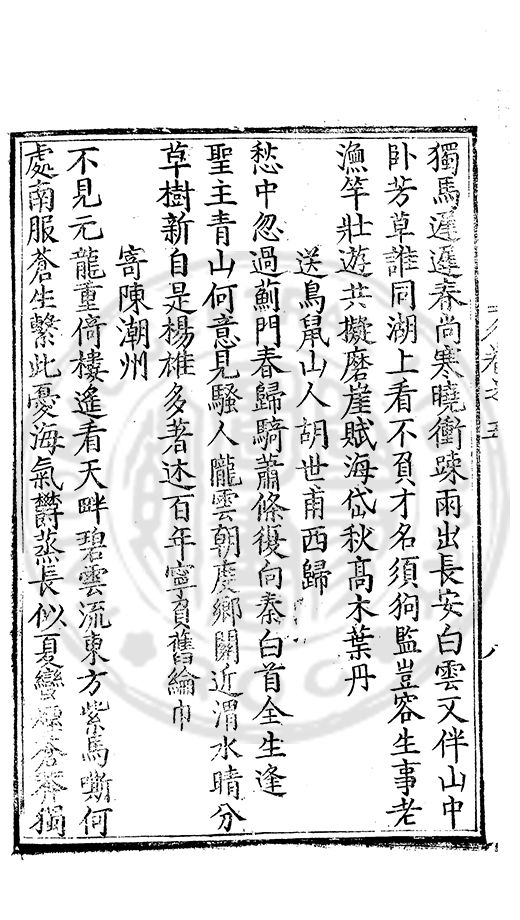 獨馬遲遲春尚寒曉衝踈雨出長安白雲又伴山中
卧芳草誰同湖上看不負才名須狗監豈容生事老
漁竿壯遊共擬磨崖賦海岱秋高木葉丹
送鳥鼠山人胡世甫西歸
愁中忽過薊門春歸騎蕭條復向秦白首全生逢
聖主青山何意見騷人隴雲朝度鄉關近渭水晴分
草樹新自是楊雄多著述百年寧負舊綸巾
寄陳潮州
不見元龍重倚樓遙看天畔碧雲流東方紫馬嘶何
處南服蒼生繫此憂海氣欝蒸長似夏蠻蒼莽獨
卷之五
八